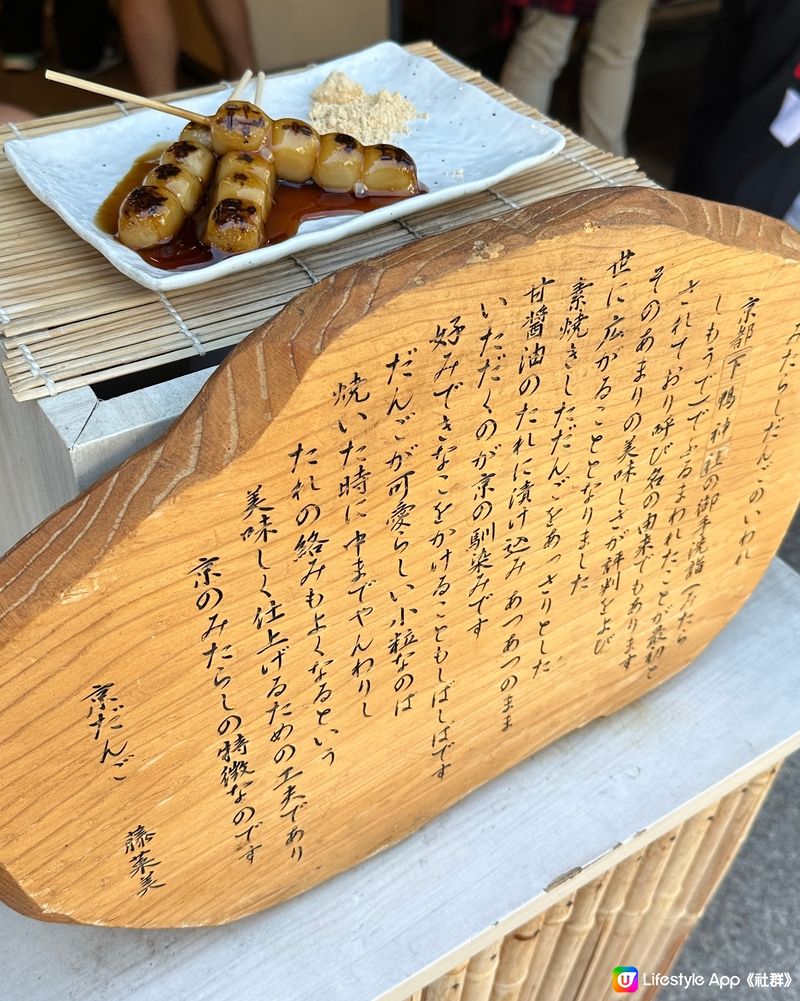 みたらしだんごのいわれ
京都下鴨神社の御手洗詣(みたら
しもうで)でふるまわれたことが最初と
されており呼び名の由来でもあります
そのあまりの美味しさが評判をよび
世に広がることとなりました
素焼きしただんごをあっさりとした
甘醤油のたれに漬け込みあつあつのまま
いただくのが京の馴染みです
好みできなこをかけることもしばしばです
だんごが可愛らしい小粒なのは
焼いた時に中までやんわりし
たれの絡みもよくなるという
美味しく仕上げるための工夫であり
京のみたらしの特徴なのです
京だんご
藤菜美
Lifestyle App《社群》